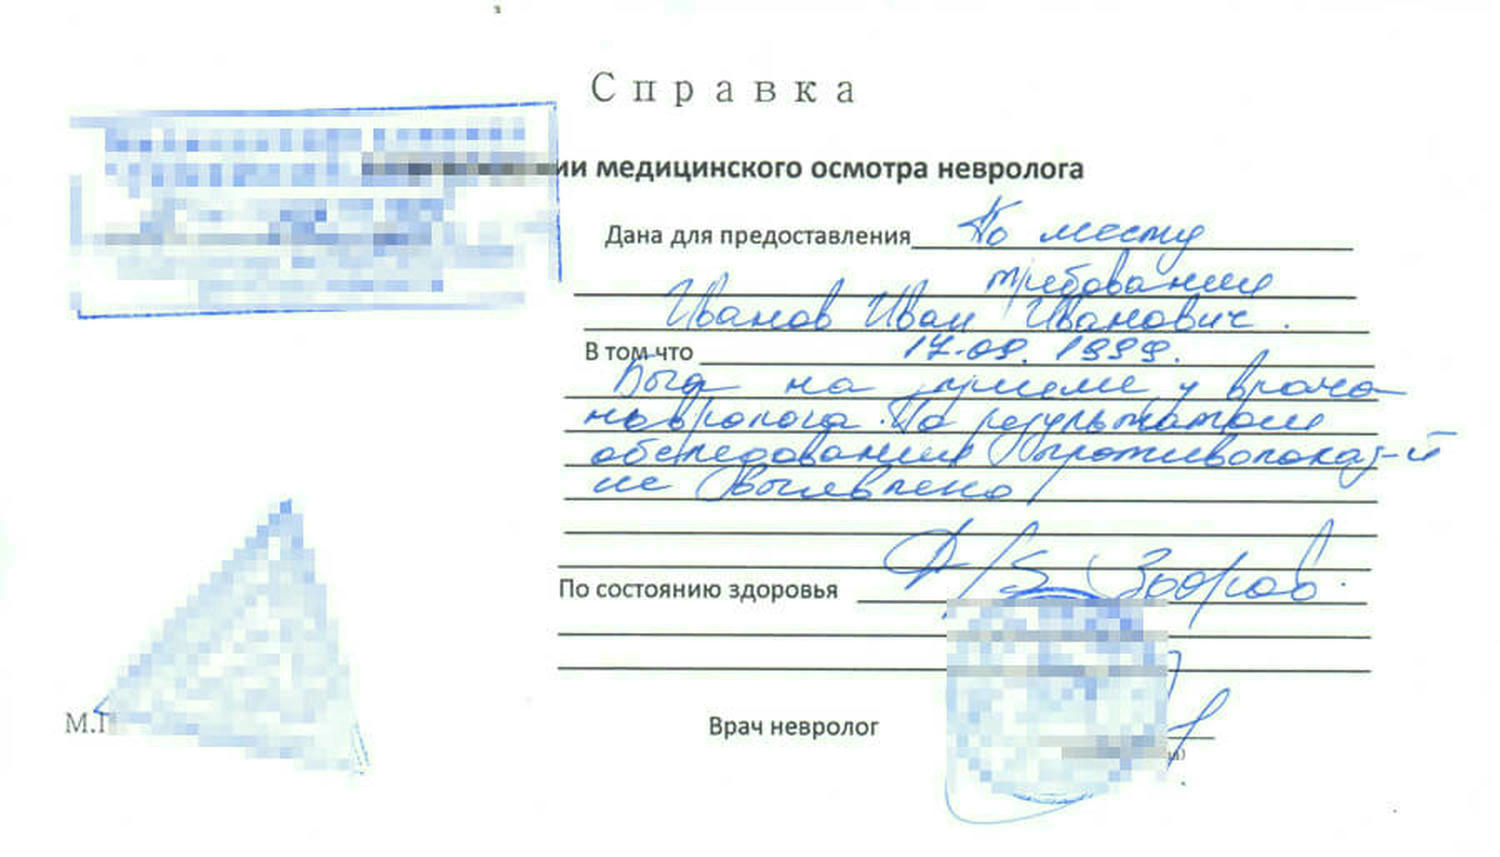 Справка
ии медицинского осмотра невролога
Дана для предоставления По месту
требования
Иванов Иван Иванович.
В том что 17.09.1999.
Был на приеме у врача
невролога. По результатам
обследования противопоказ-й
не выявлено
По состоянию здоровья Д/З Здоров.
Врач невролог
М.П